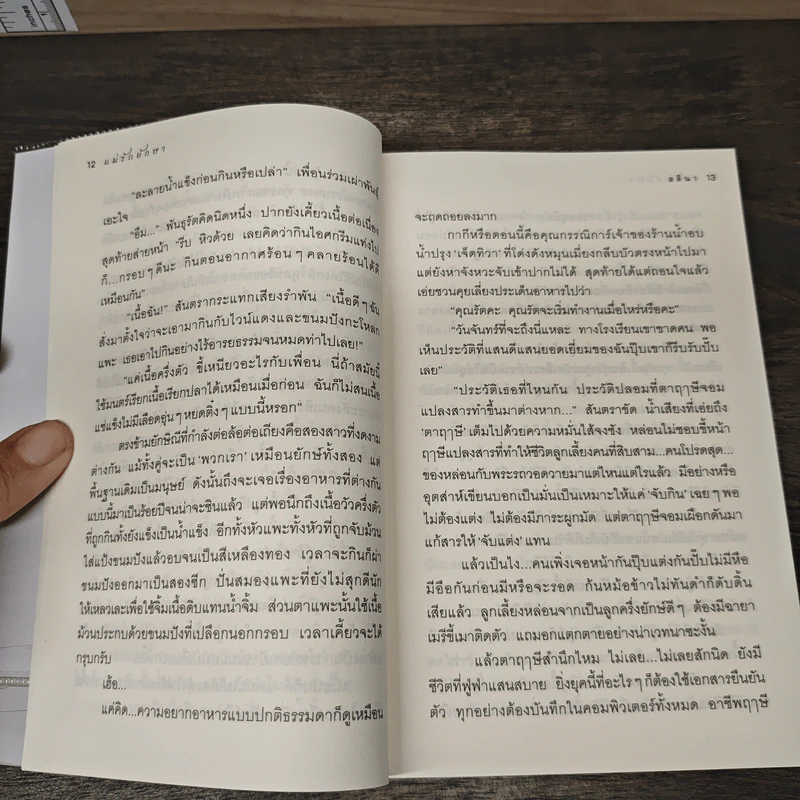 inches
1
12 แม่รักยักษา
"ละลายน้ำแข็งก่อนกินหรือเปล่า" เพื่อนร่วมเผ่าพันธุ์
เอะใจ
"อืม..." พันธุรัตคิดนิดหนึ่ง ปากยังเคี้ยวเนื้อต่อเนื่อง
สุดท้ายส่ายหน้า "รีบ หิวด้วย เลยคิดว่ากินไอศกรีมแท่งไป
ก็...กรอบๆ ดีนะ กินตอนอากาศร้อนๆ คลายร้อนได้ดี
เหมือนกัน"
"เนื้อฉัน!" สันตรากระแทกเสียงรำพัน "เนื้อดีๆ ฉัน
สั่งมาตั้งใจว่าจะเอามากินกับไวน์แดงและขนมปังกะโหลก
แพะ เธอเอาไปกินอย่างไร้อารยธรรมจนหมดท่าไปเลย!"
"แค่เนื้อครึ่งตัว ขี้เหนียวอะไรกับเพื่อน นี่ถ้าสมัยนี้
ใช้มนตร์เรียกเนื้อเรียกปลาได้เหมือนเมื่อก่อน ฉันก็ไม่สนเนื้อ
แช่แข็งไม่มีเลือดอุ่นๆ หยดติ๋งๆ แบบนี้หรอก"
ตรงข้ามยักษิณีที่กำลังต่อล้อต่อเถียงคือสองสาวที่งดงาม
ต่างกัน แม้ทั้งคู่จะเป็น 'พวกเรา' เหมือนยักษ์ทั้งสอง แต่
พื้นฐานเดิมเป็นมนุษย์ ดังนั้นถึงจะเจอเรื่องอาหารที่ต่างกัน
แบบนี้มาเป็นร้อยปีจนน่าจะชินแล้ว แต่พอนึกถึงเนื้อวัวครึ่งตัว
ที่ถูกกินทั้งยังแข็งเป็นน้ำแข็ง อีกทั้งหัวแพะทั้งหัวที่ถูกจับม้วน
ใส่แป้งขนมปังแล้วอบจนเป็นสีเหลืองทอง เวลาจะกินก็ผ่า
ขนมปังออกมาเป็นสองซีก ปั่นสมองแพะที่ยังไม่สุกดีนัก
ให้เหลวเละเพื่อใช้จิ้มเนื้อดิบแทนน้ำจิ้ม ส่วนตาแพะนั้นใช้เนื้อ
ม้วนประกบด้วยขนมปังที่เปลือกนอกกรอบ เวลาเคี้ยวจะได้
กรุบกรับ
เฮ้อ...
แค่คิด...ความอยากอาหารแบบปกติธรรมดาก็ดูเหมือน
อลินา 13
จะถดถอยลงมาก
กากีหรือตอนนี้คือคุณกรรณิการ์เจ้าของร้านน้ำอบ
น้ำปรุง 'เจ็ดทิวา' ที่โด่งดังหมุนเมี่ยงกลีบบัวตรงหน้าไปมา
แต่ยังหาจังหวะจับเข้าปากไม่ได้ สุดท้ายได้แต่ถอนใจแล้ว
เอ่ยชวนคุยเลี่ยงประเด็นอาหารไปว่า
"คุณรัตคะ คุณรัตจะเริ่มทำงานเมื่อไหร่หรือคะ"
"วันจันทร์ที่จะถึงนี่แหละ ทางโรงเรียนเขาขาดคน พอ
เห็นประวัติที่แสนดีแสนยอดเยี่ยมของฉันปุ๊บเขาก็รีบรับปั๊บ
เลย"
"ประวัติเธอที่ไหนกัน ประวัติปลอมที่ตาฤๅษีจอม
แปลงสารทำขึ้นมาต่างหาก..." สันตราขัด น้ำเสียงที่เอ่ยถึง
'ตาฤๅษี' เต็มไปด้วยความหมั่นไส้จงชัง หล่อนไม่ชอบขี้หน้า
ฤๅษีแปลงสารที่ทำให้ชีวิตลูกเลี้ยงคนที่สิบสาม...คนโปรดสุด...
ของหล่อนกับพระรถวอดวายมาแต่ไหนแต่ไรแล้ว มีอย่างหรือ
อุตส่าห์เขียนบอกเป็นมั่นเป็นเหมาะให้แค่ 'จับกิน' เฉยๆ พอ
ไม่ต้องแต่ง ไม่ต้องมีภาระผูกมัด แต่ตาฤๅษีจอมเผือกดันมา
แก้สารให้ 'จับแต่ง' แทน
แล้วเป็นไง...คนเพิ่งเจอหน้ากันปุ๊บแต่งกันปั๊บไม่มีหือ
มีอือกันก่อนมีหรือจะรอด ก้นหม้อข้าวไม่ทันดำก็ดับดิ้น
เสียแล้ว ลูกเลี้ยงหล่อนจากเป็นลูกครึ่งยักษ์ดีๆ ต้องมีฉายา
เมรีขี้เมาติดตัว แถมอกแตกตายอย่างน่าเวทนาซะงั้น
แล้วตาฤๅษีสำนึกไหม ไม่เลย...ไม่เลยสักนิด ยังมี
ชีวิตที่ฟู่ฟ่าแสนสบาย ยิ่งยุคนี้ที่อะไรๆ ก็ต้องใช้เอกสารยืนยัน
ตัว ทุกอย่างต้องบันทึกในคอมพิวเตอร์ทั้งหมด อาชีพฤๅษี